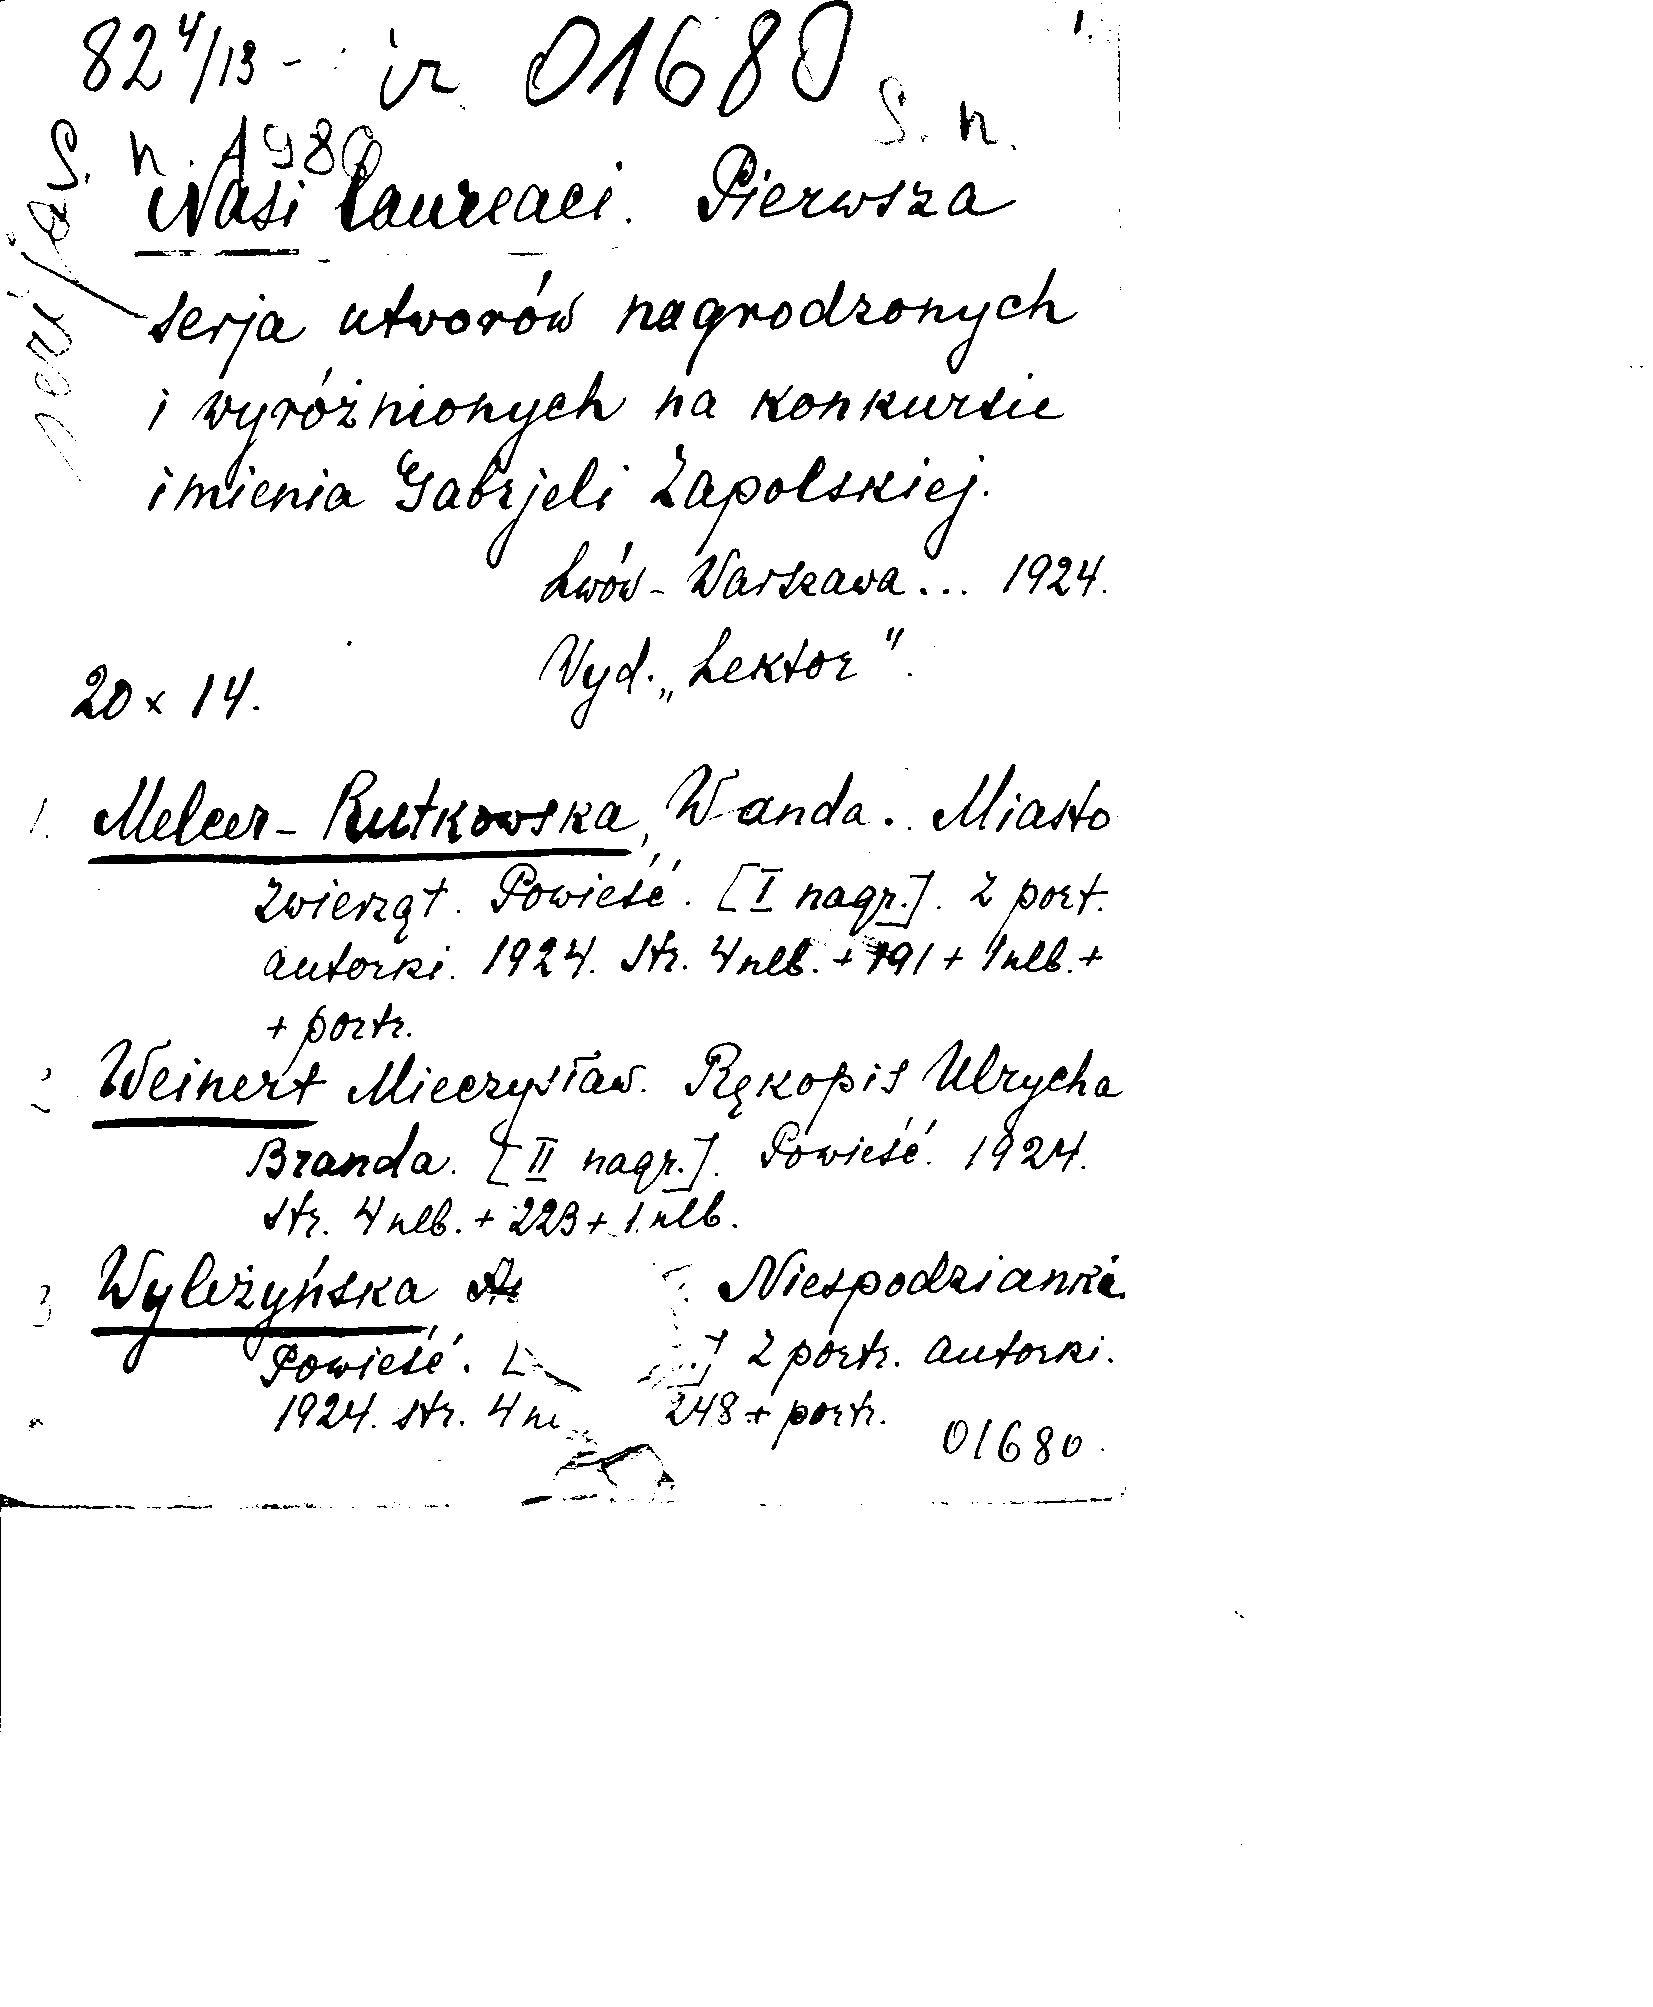 82 4/13 - ir 01680
1.
S. n. 198 S. n.
serja
Nasi Laureaci. Pierwsza
serja utworów nagrodzonych
i wyróżnionych na konkursie
imienia Gabrjeli Zapolskiej.
Lwów - Warszawa... 1924.
Wyd. „Lektor".
20 x 14.
1. Melcer - Rutkowska, Wanda. Miasto
zwierząt. Powieść. [I nagr.]. Z port.
autorki. 1924. Str. 4 nlb. + 191 + 1 nlb. +
+ portr.
2 Weinert Mieczysław. Rękopis Ulrycha
Branda. [II nagr.]. Powieść. 1924.
Str. 4 nlb. + 223 + 1 nlb.
3 Wyleżyńska Niespodzianki.
Powieść. [ ] Z portr. autorki.
1924. str. 4 248 + portr.
01680.